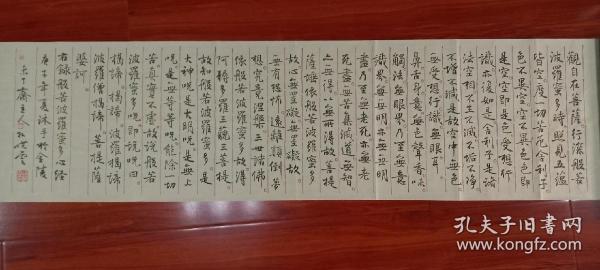 觀自在菩薩行深般若
波羅蜜多時照見五蘊
皆空度一切苦厄舍利子
色不異空空不異色色即
是空空即是色受想行
識亦復如是舍利子是諸
法空相不生不滅不垢不淨
不增不減是故空中無色
無受想行識無眼耳
鼻舌身意無色聲香味
觸法無眼界乃至無意
識界無無明亦無無明
盡乃至無老死亦無老
死盡無苦集滅道無智
亦無得以無所得故菩提
薩埵依般若波羅蜜多
故心無罣礙無罣礙故
無有恐怖遠離顛倒夢
想究竟涅槃三世諸佛
依般若波羅蜜多故得
阿耨多羅三藐三菩提
故知般若波羅蜜多是
大神咒是大明咒是無上
咒是無等等咒能除一切
苦真實不虛故說般若
波羅蜜多咒即說咒曰
揭諦揭諦波羅揭諦
波羅僧揭諦菩提薩
婆訶
右錄般若波羅蜜多心經
庚子年夏沐手於金陵
孔夫子旧书网
www.kongfz.com